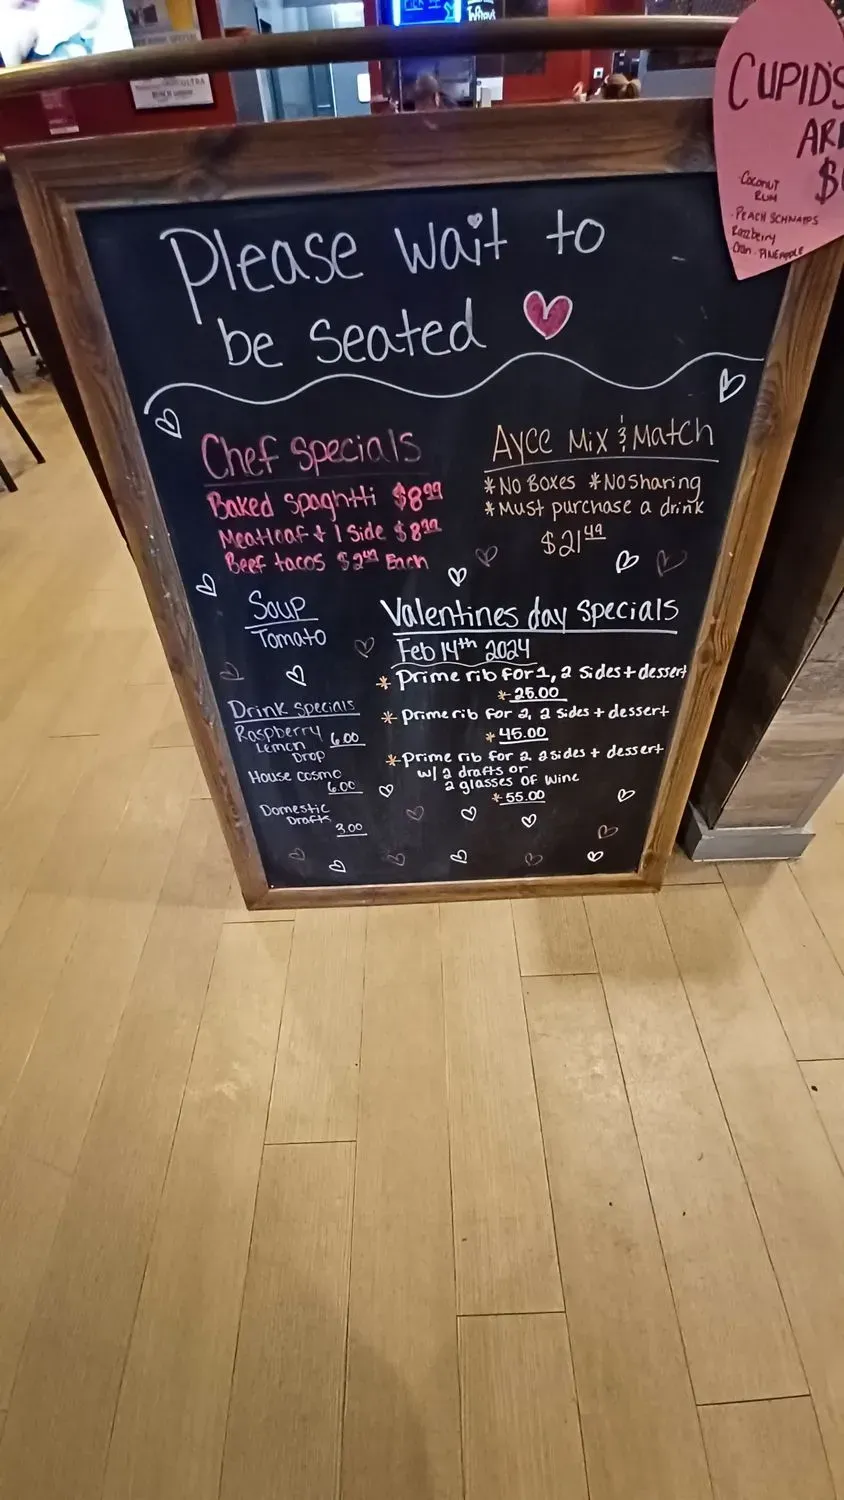 Please wait to
be seated
Chef Specials
Baked Spaghtti $8.99
Meatloaf + 1 Side $8.99
Beef tacos $2.49 Each
Ayce Mix & Match
*No Boxes *No sharing
*Must purchase a drink
$21.49
Soup
Tomato
Drink Specials
Raspberry
Lemon
Drop 6.00
House cosmo
6.00
Domestic
Drafts
3.00
Valentines day Specials
Feb 14th 2024
* Prime rib for 1, 2 sides + dessert
* 25.00
* Prime rib for 2, 2 sides + dessert
* 45.00
* Prime rib for 2 2 sides + dessert
w/ 2 drafts or
2 glasses of wine
* 55.00
CUPID'S
AR
$
·Coconut
Rum
·PEACH SCHNAPPS
Razberry
Cran·PINEAPPLE
ULTRA